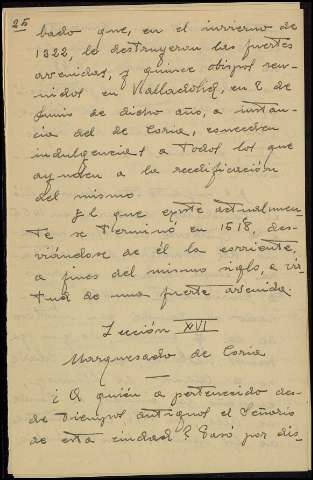 25
bado que, en el invierno de
1322, le destruyeron las fuertes
avenidas, y quince obispos reu-
nidos en Valladolid, en 2 de
Junio de dicho año, a instan-
cia del de Coria, conceden
indulgencias a todos los que
ayuden a la reedificación
del mismo.
El que existe actualmen-
te se terminó en 1518, des-
viándose de él la corriente,
a fines del mismo siglo, a vir-
tud de una fuerte avenida.
Lección XVI
Marquesado de Coria
¿A quién a pertenecido des-
de tiempos antiguos el Señorio
de esta ciudad? Pasó por dis-